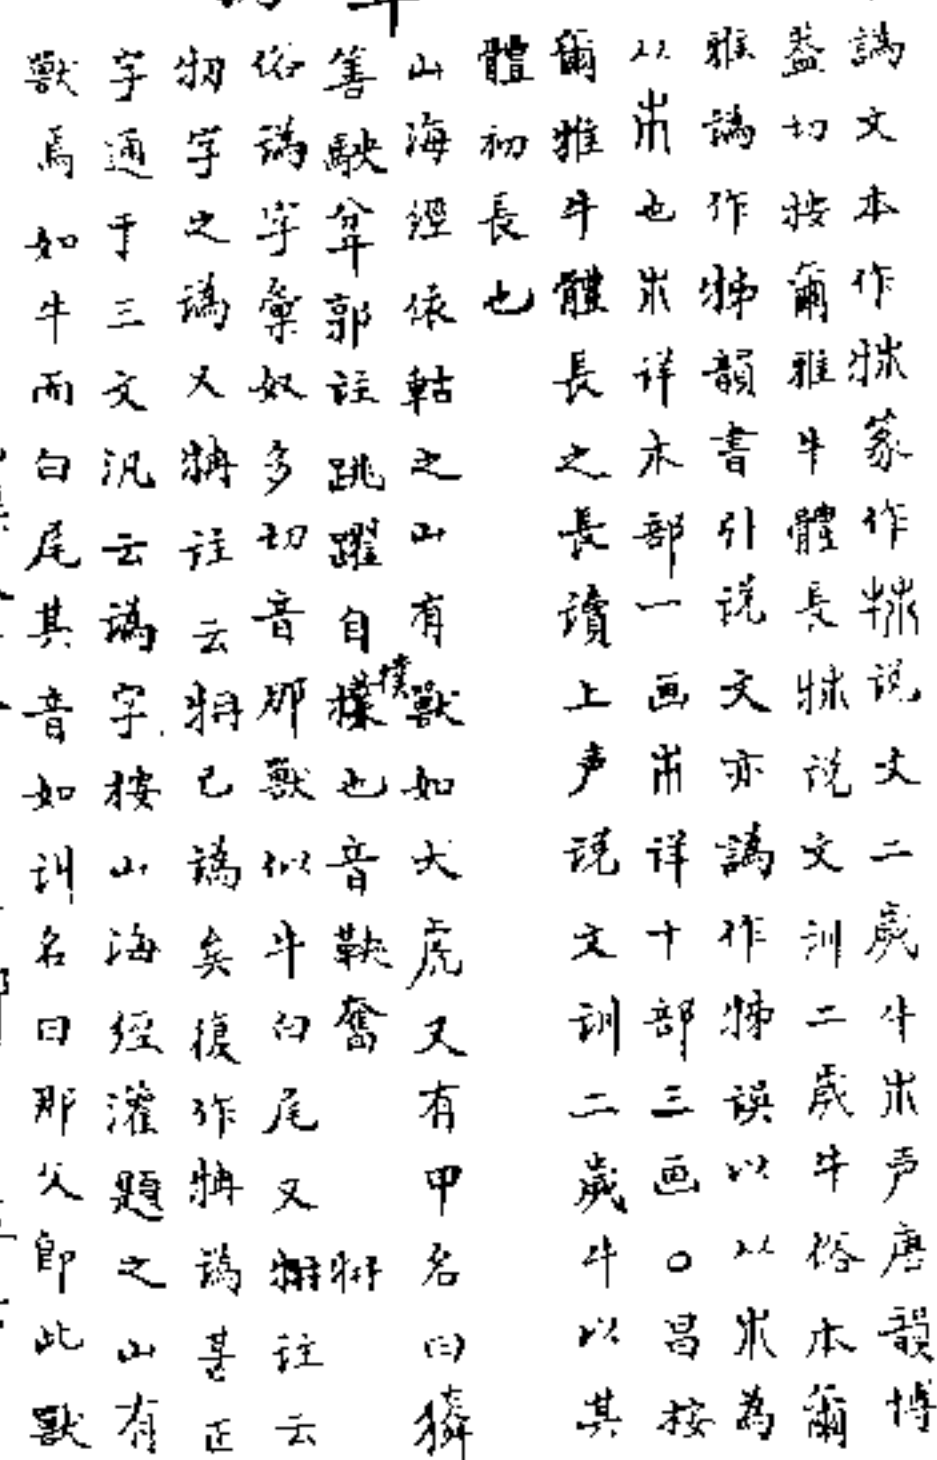 譌文本作㸬篆作㸬说文二歲牛𣎵声唐韻博
葢切按爾雅牛體長㸬说文训二歲牛俗本爾
雅譌作㹃韻書引说文亦譌作㹃误以以𣎵為
以巿也𣎵详木部一画巿详十部三画○昌按
爾雅牛體長之長讀上声说文训二歲牛以其
體初長也
山海經依軲之山有獸如犬虎又有甲名曰獜
善駚坌郭註跳躍自撲也音鞅奮
俗譌字彙奴多切音那獸似牛白尾又註云
字之譌又註云已譌矣復作譌甚正
字通于三文汎云譌字按山海經灌題之山有
獸焉如牛而白尾其音如訓名曰那父即此獸